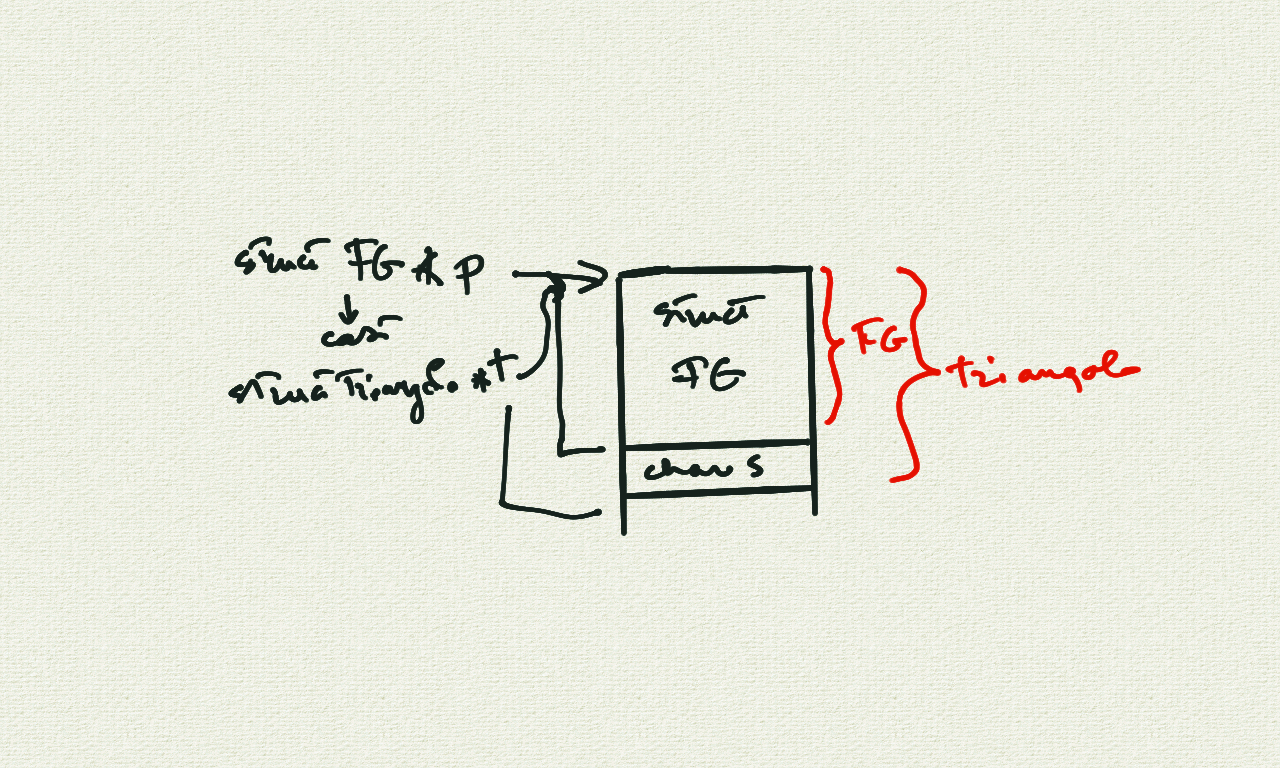 struct FG * p
cast
struct Triangle * t
struct
FG
char s
FG
triangle